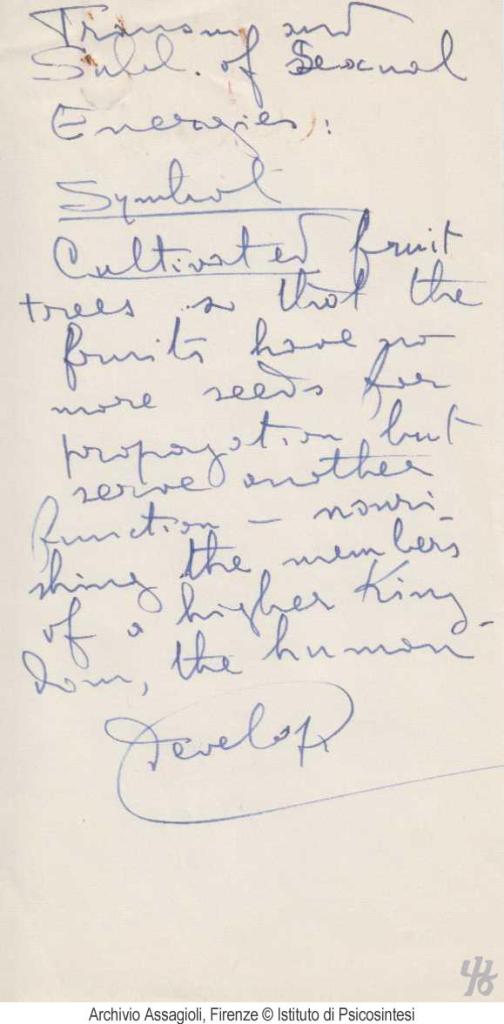 Transm. and
Subl. of Sexual
Energies:
Symbol
Cultivated fruit
trees so that the
fruits have no
more seeds for
propagation but
serve another
function — nouri-
shing the members
of a higher King-
dom, the human
Develop
46
Archivio Assagioli, Firenze © Istituto di Psicosintesi